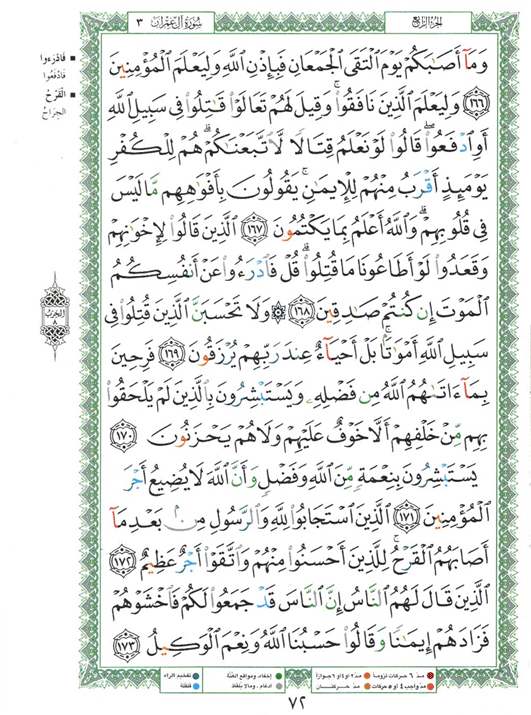 الجزء الرابع
سورة آل عمران ٣
وَمَآ أَصَٰبَكُمْ يَوْمَ ٱلْتَقَى ٱلْجَمْعَانِ فَبِإِذْنِ ٱللَّهِ وَلِيَعْلَمَ ٱلْمُؤْمِنِينَ
١٦٦ وَلِيَعْلَمَ ٱلَّذِينَ نَافَقُوا۟ۚ وَقِيلَ لَهُمْ تَعَالَوْا۟ قَٰتِلُوا۟ فِى سَبِيلِ ٱللَّهِ
أَوِ ٱدْفَعُوا۟ۖ قَالُوا۟ لَوْ نَعْلَمُ قِتَالًا لَّٱتَّبَعْنَٰكُمْۗ هُمْ لِلْكُفْرِ
يَوْمَئِذٍ أَقْرَبُ مِنْهُمْ لِلْإِيمَٰنِۚ يَقُولُونَ بِأَفْوَٰهِهِم مَّا لَيْسَ
فِى قُلُوبِهِمْۗ وَٱللَّهُ أَعْلَمُ بِمَا يَكْتُمُونَ ١٦٧ ٱلَّذِينَ قَالُوا۟ لِإِخْوَٰنِهِمْ
وَقَعَدُوا۟ لَوْ أَطَاعُونَا مَا قُتِلُوا۟ۗ قُلْ فَٱدْرَءُوا۟ عَنْ أَنفُسِكُمُ
ٱلْمَوْتَ إِن كُنتُمْ صَٰدِقِينَ ١٦٨ ۞ وَلَا تَحْسَبَنَّ ٱلَّذِينَ قُتِلُوا۟ فِى
سَبِيلِ ٱللَّهِ أَمْوَٰتًۢاۚ بَلْ أَحْيَآءٌ عِندَ رَبِّهِمْ يُرْزَقُونَ ١٦٩ فَرِحِينَ
بِمَآ ءَاتَىٰهُمُ ٱللَّهُ مِن فَضْلِهِۦ وَيَسْتَبْشِرُونَ بِٱلَّذِينَ لَمْ يَلْحَقُوا۟
بِهِم مِّنْ خَلْفِهِمْ أَلَّا خَوْفٌ عَلَيْهِمْ وَلَا هُمْ يَحْزَنُونَ ١٧٠
يَسْتَبْشِرُونَ بِنِعْمَةٍ مِّنَ ٱللَّهِ وَفَضْلٍ وَأَنَّ ٱللَّهَ لَا يُضِيعُ أَجْرَ
ٱلْمُؤْمِنِينَ ١٧١ ٱلَّذِينَ ٱسْتَجَابُوا۟ لِلَّهِ وَٱلرَّسُولِ مِنۢ بَعْدِ مَآ
أَصَابَهُمُ ٱلْقَرْحُۚ لِلَّذِينَ أَحْسَنُوا۟ مِنْهُمْ وَٱتَّقَوْا۟ أَجْرٌ عَظِيمٌ ١٧٢
ٱلَّذِينَ قَالَ لَهُمُ ٱلنَّاسُ إِنَّ ٱلنَّاسَ قَدْ جَمَعُوا۟ لَكُمْ فَٱخْشَوْهُمْ
فَزَادَهُمْ إِيمَٰنًا وَقَالُوا۟ حَسْبُنَا ٱللَّهُ وَنِعْمَ ٱلْوَكِيلُ ١٧٣
فَادْرَءوا
فَادْفَعُوا
الْقَرْحُ
الجِرَاحُ
الحزب
٨
مدّ ٦ حركات لزوماً
مدّ ٢ أو ٤ أو ٦ جوازاً
إخفاء، ومواقع الغُنَّة
تفخيم الراء
مدّ واجب ٤ أو ٥ حركات
مدّ حركتان
ادغام، وما لا يُلفَظ
قلقلة
٧٢